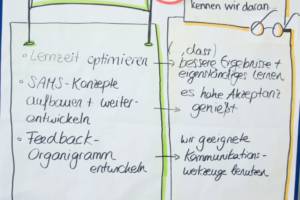 kennen wir daran
• Lernzeit optimieren
• SAMS-Konzepte
aufbauen + weiter-
entwickeln
• Feedback-
Organigramm
entwickeln
(, dass)
bessere Ergebnisse +
eigenständiges lernen
es hohe Akzeptanz
genießt
wir geeignete
Kommunikations-
werkzeuge benutzen